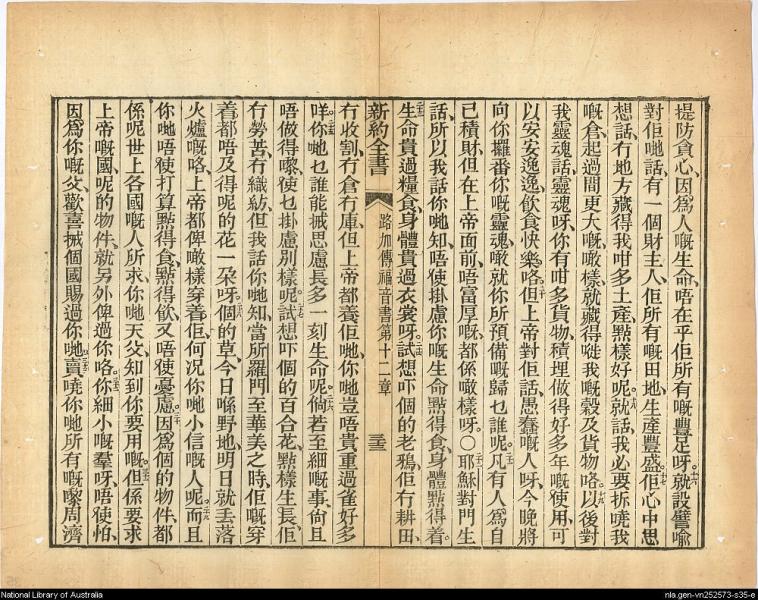 提防貪心、因爲人嘅生命、唔在乎佢所有嘅豐足呀。十六就設譬喻
對佢哋話、有一個財主人、佢所有嘅田地、生產豐盛。十七佢心中思
想話、冇地方藏得我咁多土產、點樣好呢。十八就話、我必要拆哓我
嘅倉、起過間更大嘅、噉樣就藏得嗮我嘅穀及貨物咯。十九以後對
我靈魂話、靈魂呀、你有咁多貨物、積埋做得好多年嘅使用、可
以安安逸逸、飲食快樂咯。二十但上帝對佢話、愚蠢嘅人呀、今晚將
向你攞番你嘅靈魂、噉就你所預備嘅歸乜誰呢。二十一凡有人爲自
己積財、但在上帝面前、唔富厚嘅、都係噉樣呀。〇二十二耶穌對門生
話、所以我話你哋知、唔使掛慮你嘅生命點得食、身體點得着。
二十三生命貴過糧食、身體貴過衣裳呀。二十四試想吓個的老鴉、佢冇耕田、
新約全書
路加傳福音書第十二章
三三
冇收割、冇倉冇庫、但上帝都養佢哋、你哋豈唔貴重過雀好多
咩。二十五你哋乜誰能𢭃思慮長多一刻生命呢。二十六倘若至細嘅事、尙且
唔做得嚟、使乜掛慮別樣呢。二十七試想吓個的百合花、點樣生長、佢
冇勞苦、冇織紡、但我話你哋知、當所羅門至華美之時、佢嘅穿
着、都唔及得呢的花一朶呀。二十八個的草、今日喺野地、明日就丢落
火爐嘅咯、上帝都俾噉樣穿着佢、何況你哋小信嘅人呢。二十九而且
你哋唔使打算點得食、點得飲、又唔使憂慮。三十因爲個的物件、都
係呢世上各國嘅人所求、你哋天父、知到你要用嘅。三十一但係要求
上帝嘅國、呢的物件、就另外俾過你咯。三十二你細小嘅羣呀、唔使怕、
因爲你嘅父、歡喜𢭃個國賜過你哋。三十三賣哓你哋所有嘅、嚟周濟
National Library of Australia
nla.gen-vn252573-s35-e